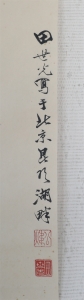 田世光寫于北京昆明湖畔